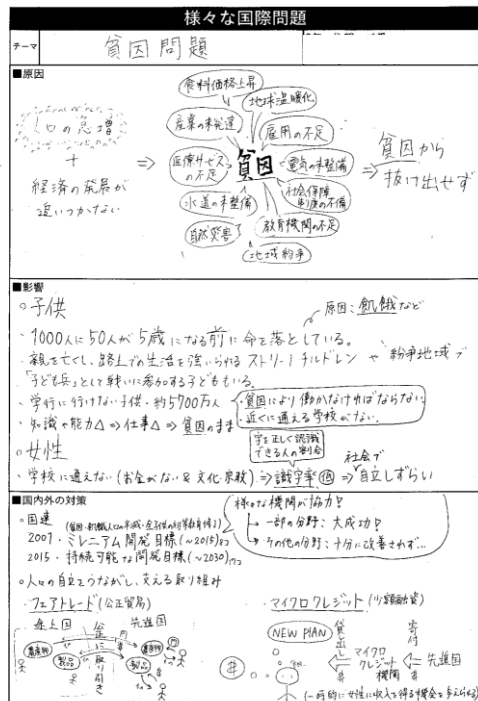 様々な国際問題
テーマ 貧困問題
■原因
人口の急増
+
経済の発展が
追いつかない
⇒
食料価格上昇
地球温暖化
産業の未発達
雇用の不足
医療サービス
の不足
貧困
電気の未整備
水道の未整備
社会保障
制度の不備
自然災害
教育機関の不足
地域紛争
⇒ 貧困から
抜け出せず
■影響
○子供
原因:飢餓など
・1000人に50人が5歳になる前に命を落としている。
・親を亡くし、路上での生活を強いられるストリートチルドレンや紛争地域で
「子ども兵」として戦いに参加する子どももいる。
・学行に行けない子供・約5700万人
・貧困により働かなければならない
・近くに通える学校がない。
・知識や能力△⇒仕事△⇒貧困のまま
○女性
字を正しく認識
できる人の割合
・学校に通えない(お金がない&文化・宗教)⇒識字率低⇒社会で自立しずらい
■国内外の対策
○国連
様々な機関が協力!
→一部の分野:大成功!
→その他の分野:十分に改善されず…
・ミレニアム開発目標(~2015)
2015・持続可能な開発目標(~2030)
○人々の自立をうながし、支える取り組み
・フェアトレード(公正貿易)
途上国
先進国
農産物
製品
公正に取り引き
農産物
製品
・マイクロクレジット(少額融資)
NEW PLAN
貸出し
マイクロ
クレジット
機関
寄付
先進国
(一時的に女性に収入を得る機会を与えられる)